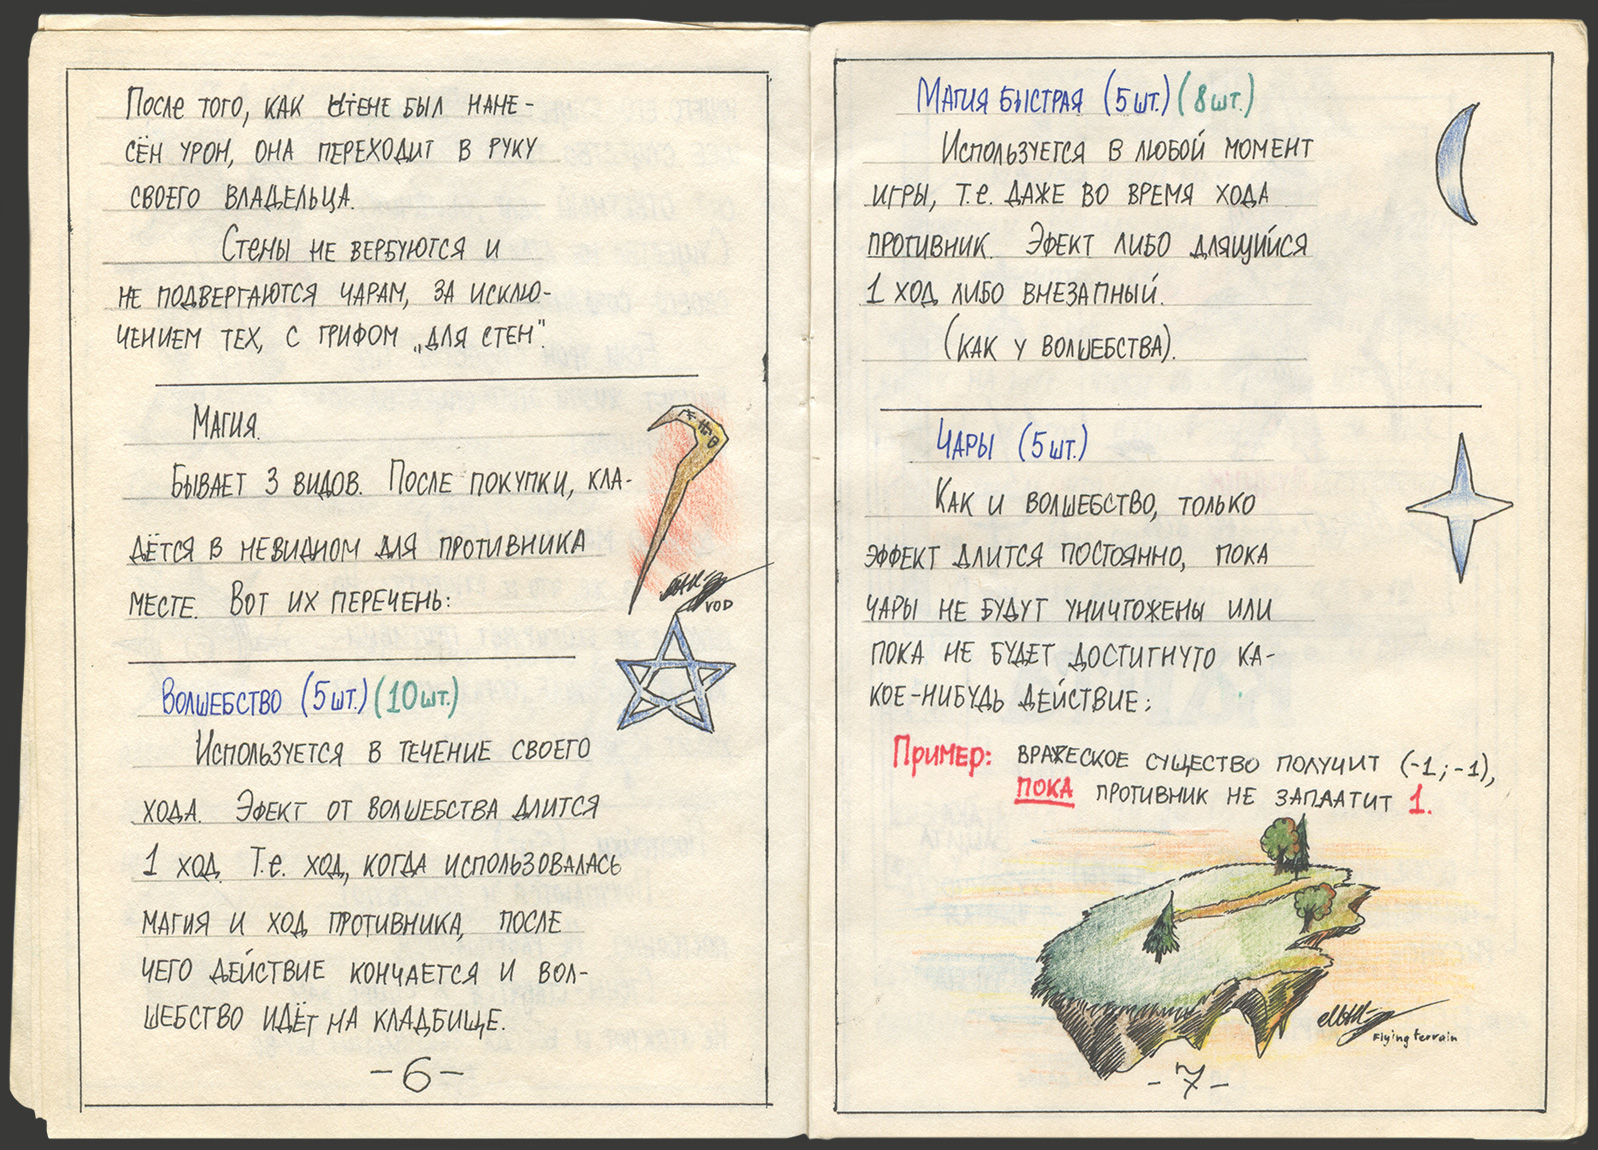 После того, как стене был нане-
сён урон, она переходит в руку
своего владельца.
Стены не вербуются и
не подвергаются чарам, за исклю-
чением тех, с грифом „для стен".
Магия.
Бывает 3 видов. После покупки, кла-
дётся в невидном для противника
месте. Вот их перечень:
ROD
Волшебство (5шт.) (10шт.)
Используется в течение своего
хода. Эфект от волшебства длится
1 ход. Т.е. ход, когда использовалась
магия и ход противника, после
чего действие кончается и вол-
шебство идёт на кладбище.
-6-
Магия быстрая (5шт.) (8шт.)
Используется в любой момент
игры, т.е. даже во время хода
противник. Эфект либо длящийся
1 ход либо внезапный.
(как у волшебства).
Чары (5шт.)
Как и волшебство, только
эффект длится постоянно, пока
чары не будут уничтожены или
пока не будет достигнуто ка-
кое-нибудь действие;
Пример: вражеское существо получит (-1;-1),
пока противник не заплатит 1.
Flying terrain
-7-